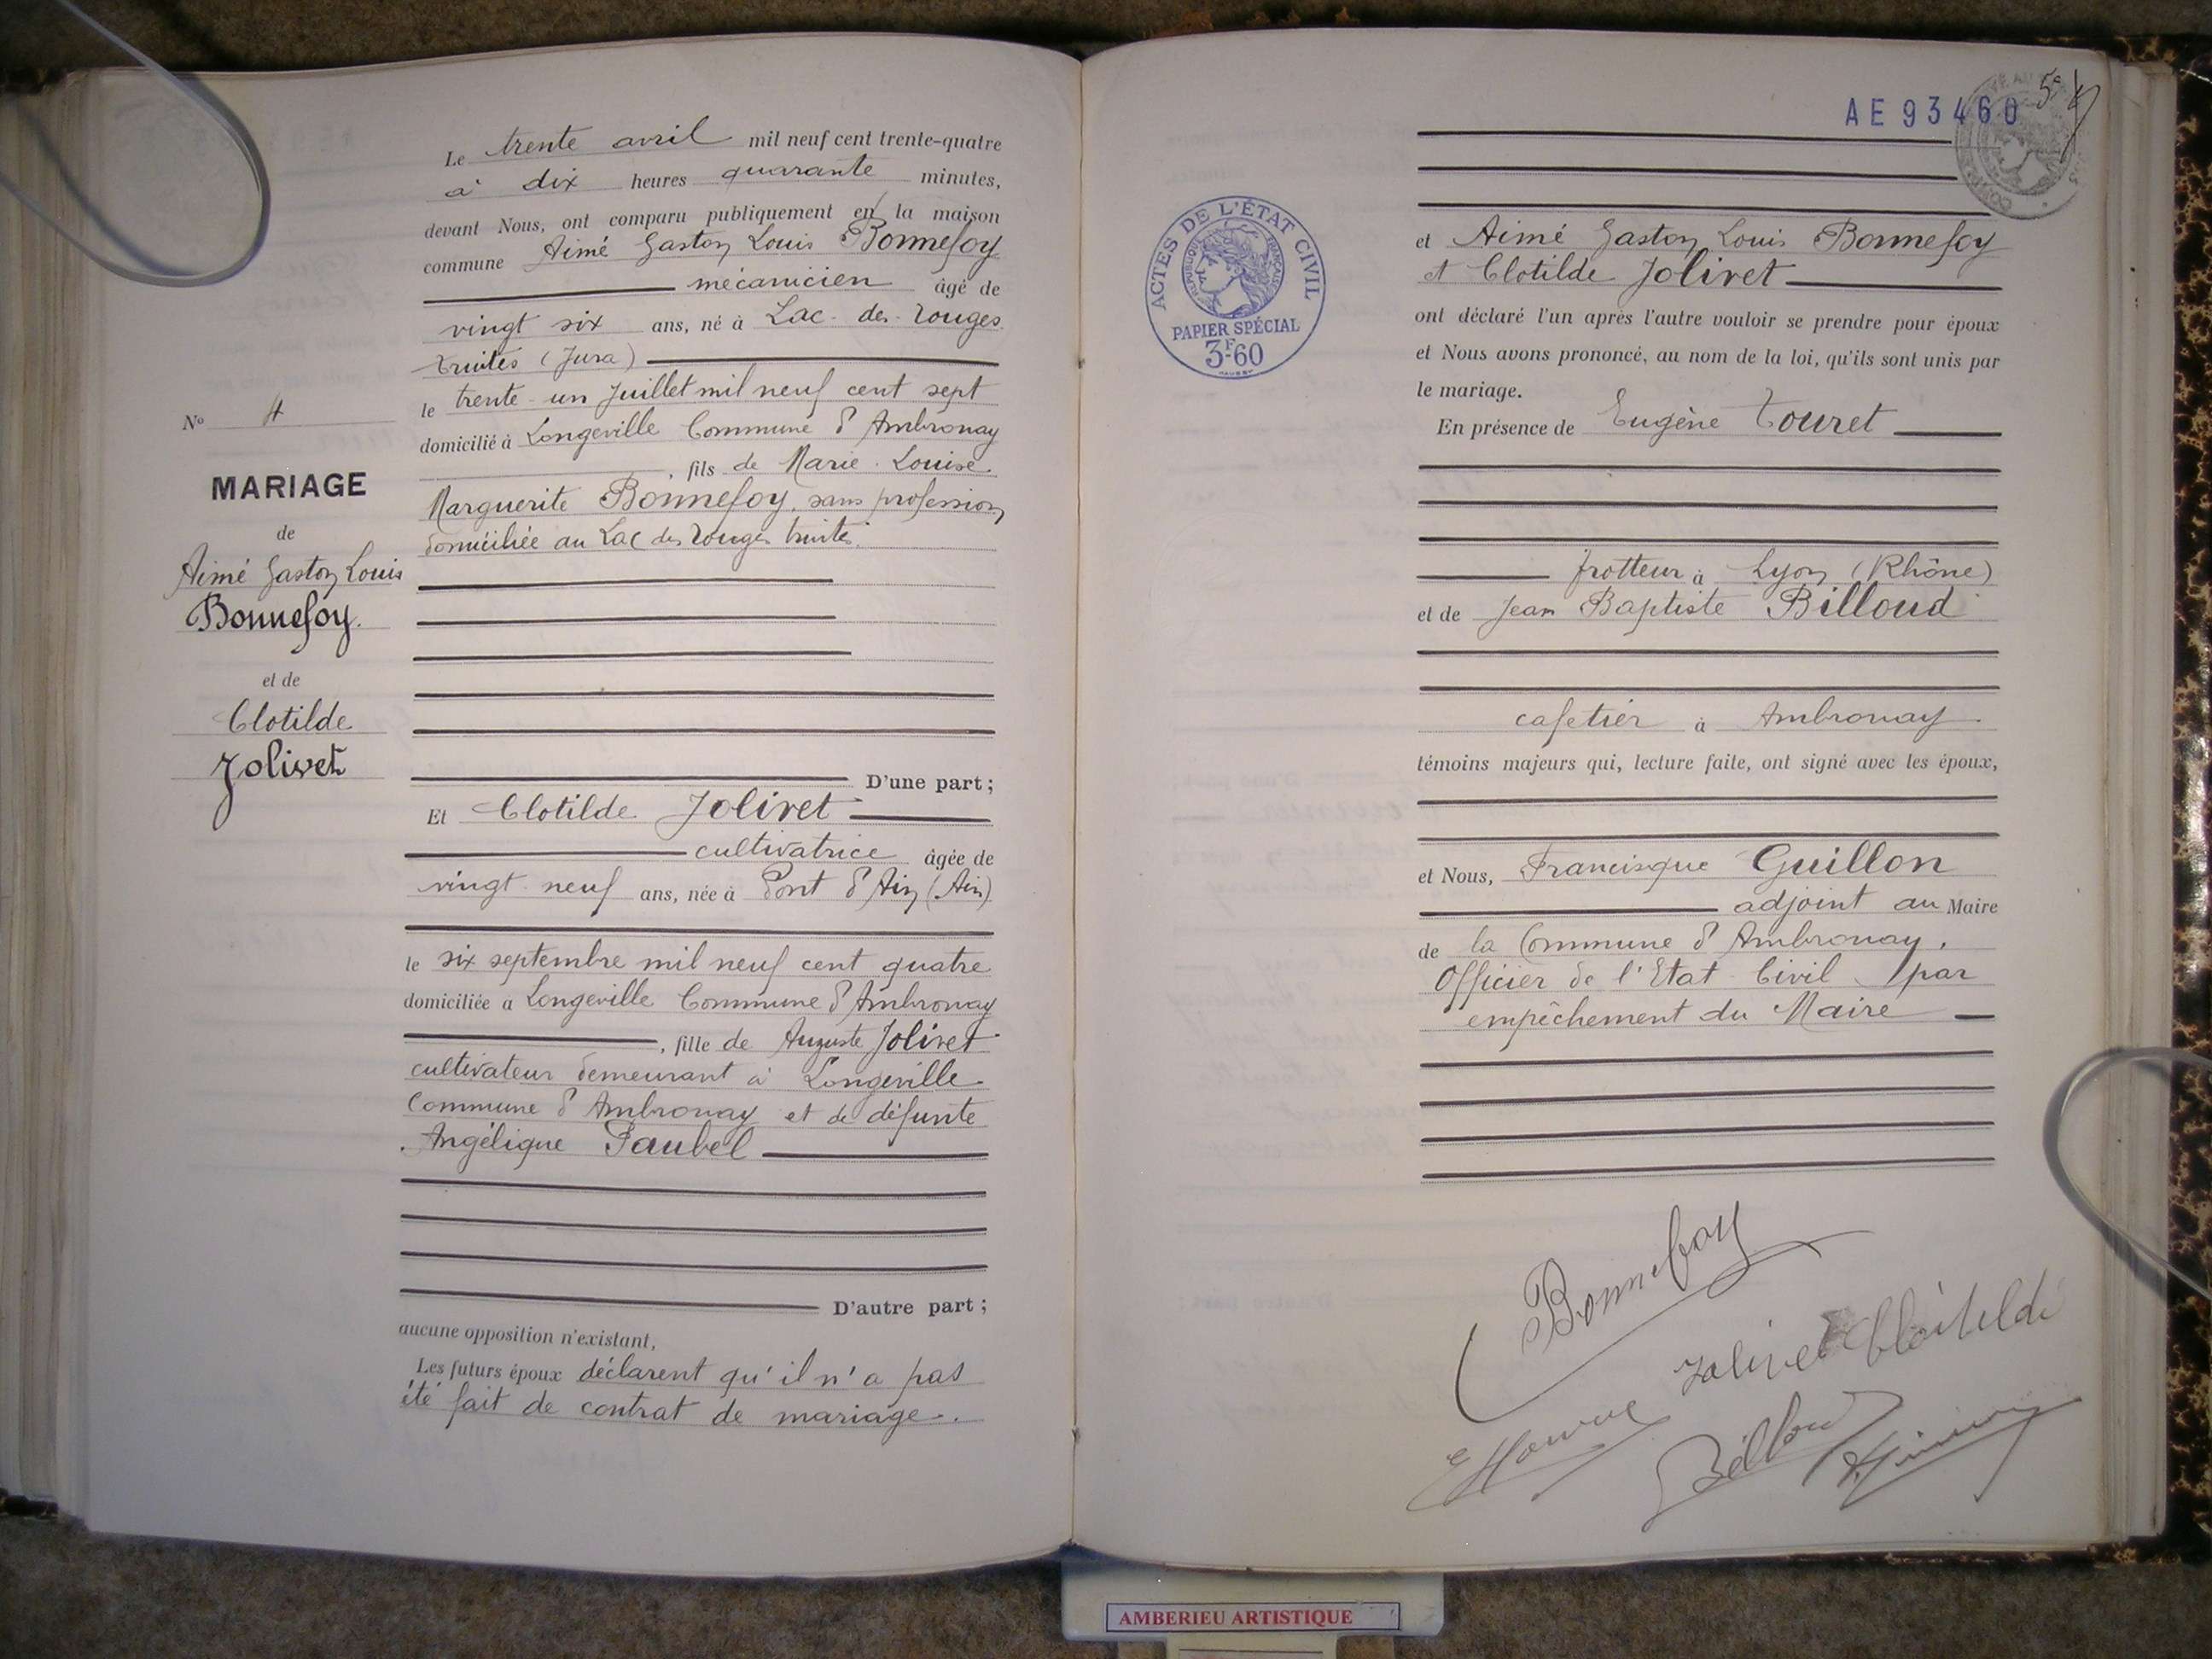 Le trente avril mil neuf cent trente-quatre
à dix heures quarante minutes,
devant Nous, ont comparu publiquement en la maison
commune Aimé Gaston Louis Bonnefoy
mécanicien âgé de
vingt six ans, né à Lac-des-Rouges
truites (Jura)
le trente-un Juillet mil neuf cent sept
domicilié à Longeville Commune d'Ambronay
, fils de Marie-Louise
Marguerite Bonnefoy, sans profession,
domiciliée au Lac des Rouges truites.
D'une part ;
Et Clotilde Jolivet
cultivatrice âgée de
vingt-neuf ans, née à Pont d'Ain (Ain)
le six septembre mil neuf cent quatre
domiciliée à Longeville Commune d'Ambronay
, fille de Auguste Jolivet
cultivateur demeurant à Longeville
Commune d'Ambronay et de défunte
Angélique Paubel
D'autre part ;
aucune opposition n'existant,
Les futurs époux déclarent qu'il n'a pas
été fait de contrat de mariage.
No 4
MARIAGE
de
Aimé Gaston Louis
Bonnefoy.
et de
Clotilde
Jolivet
AE 93460
ACTES DE L'ÉTAT CIVIL
RÉPUBLIQUE FRANÇAISE
PAPIER SPÉCIAL
3F60
et Aimé Gaston Louis Bonnefoy
et Clotilde Jolivet
ont déclaré l'un après l'autre vouloir se prendre pour époux
et Nous avons prononcé, au nom de la loi, qu'ils sont unis par
le mariage.
En présence de Eugène Touret
frotteur à Lyon (Rhône)
et de Jean Baptiste Billoud
cafetier à Ambronay.
témoins majeurs qui, lecture faite, ont signé avec les époux,
et Nous, Francisque Guillon
adjoint au Maire
de la Commune d'Ambronay,
Officier de l'Etat Civil par
empêchement du Maire
Bonnefoy
Jolivet Clotilde
Billoud
AMBERIEU ARTISTIQUE